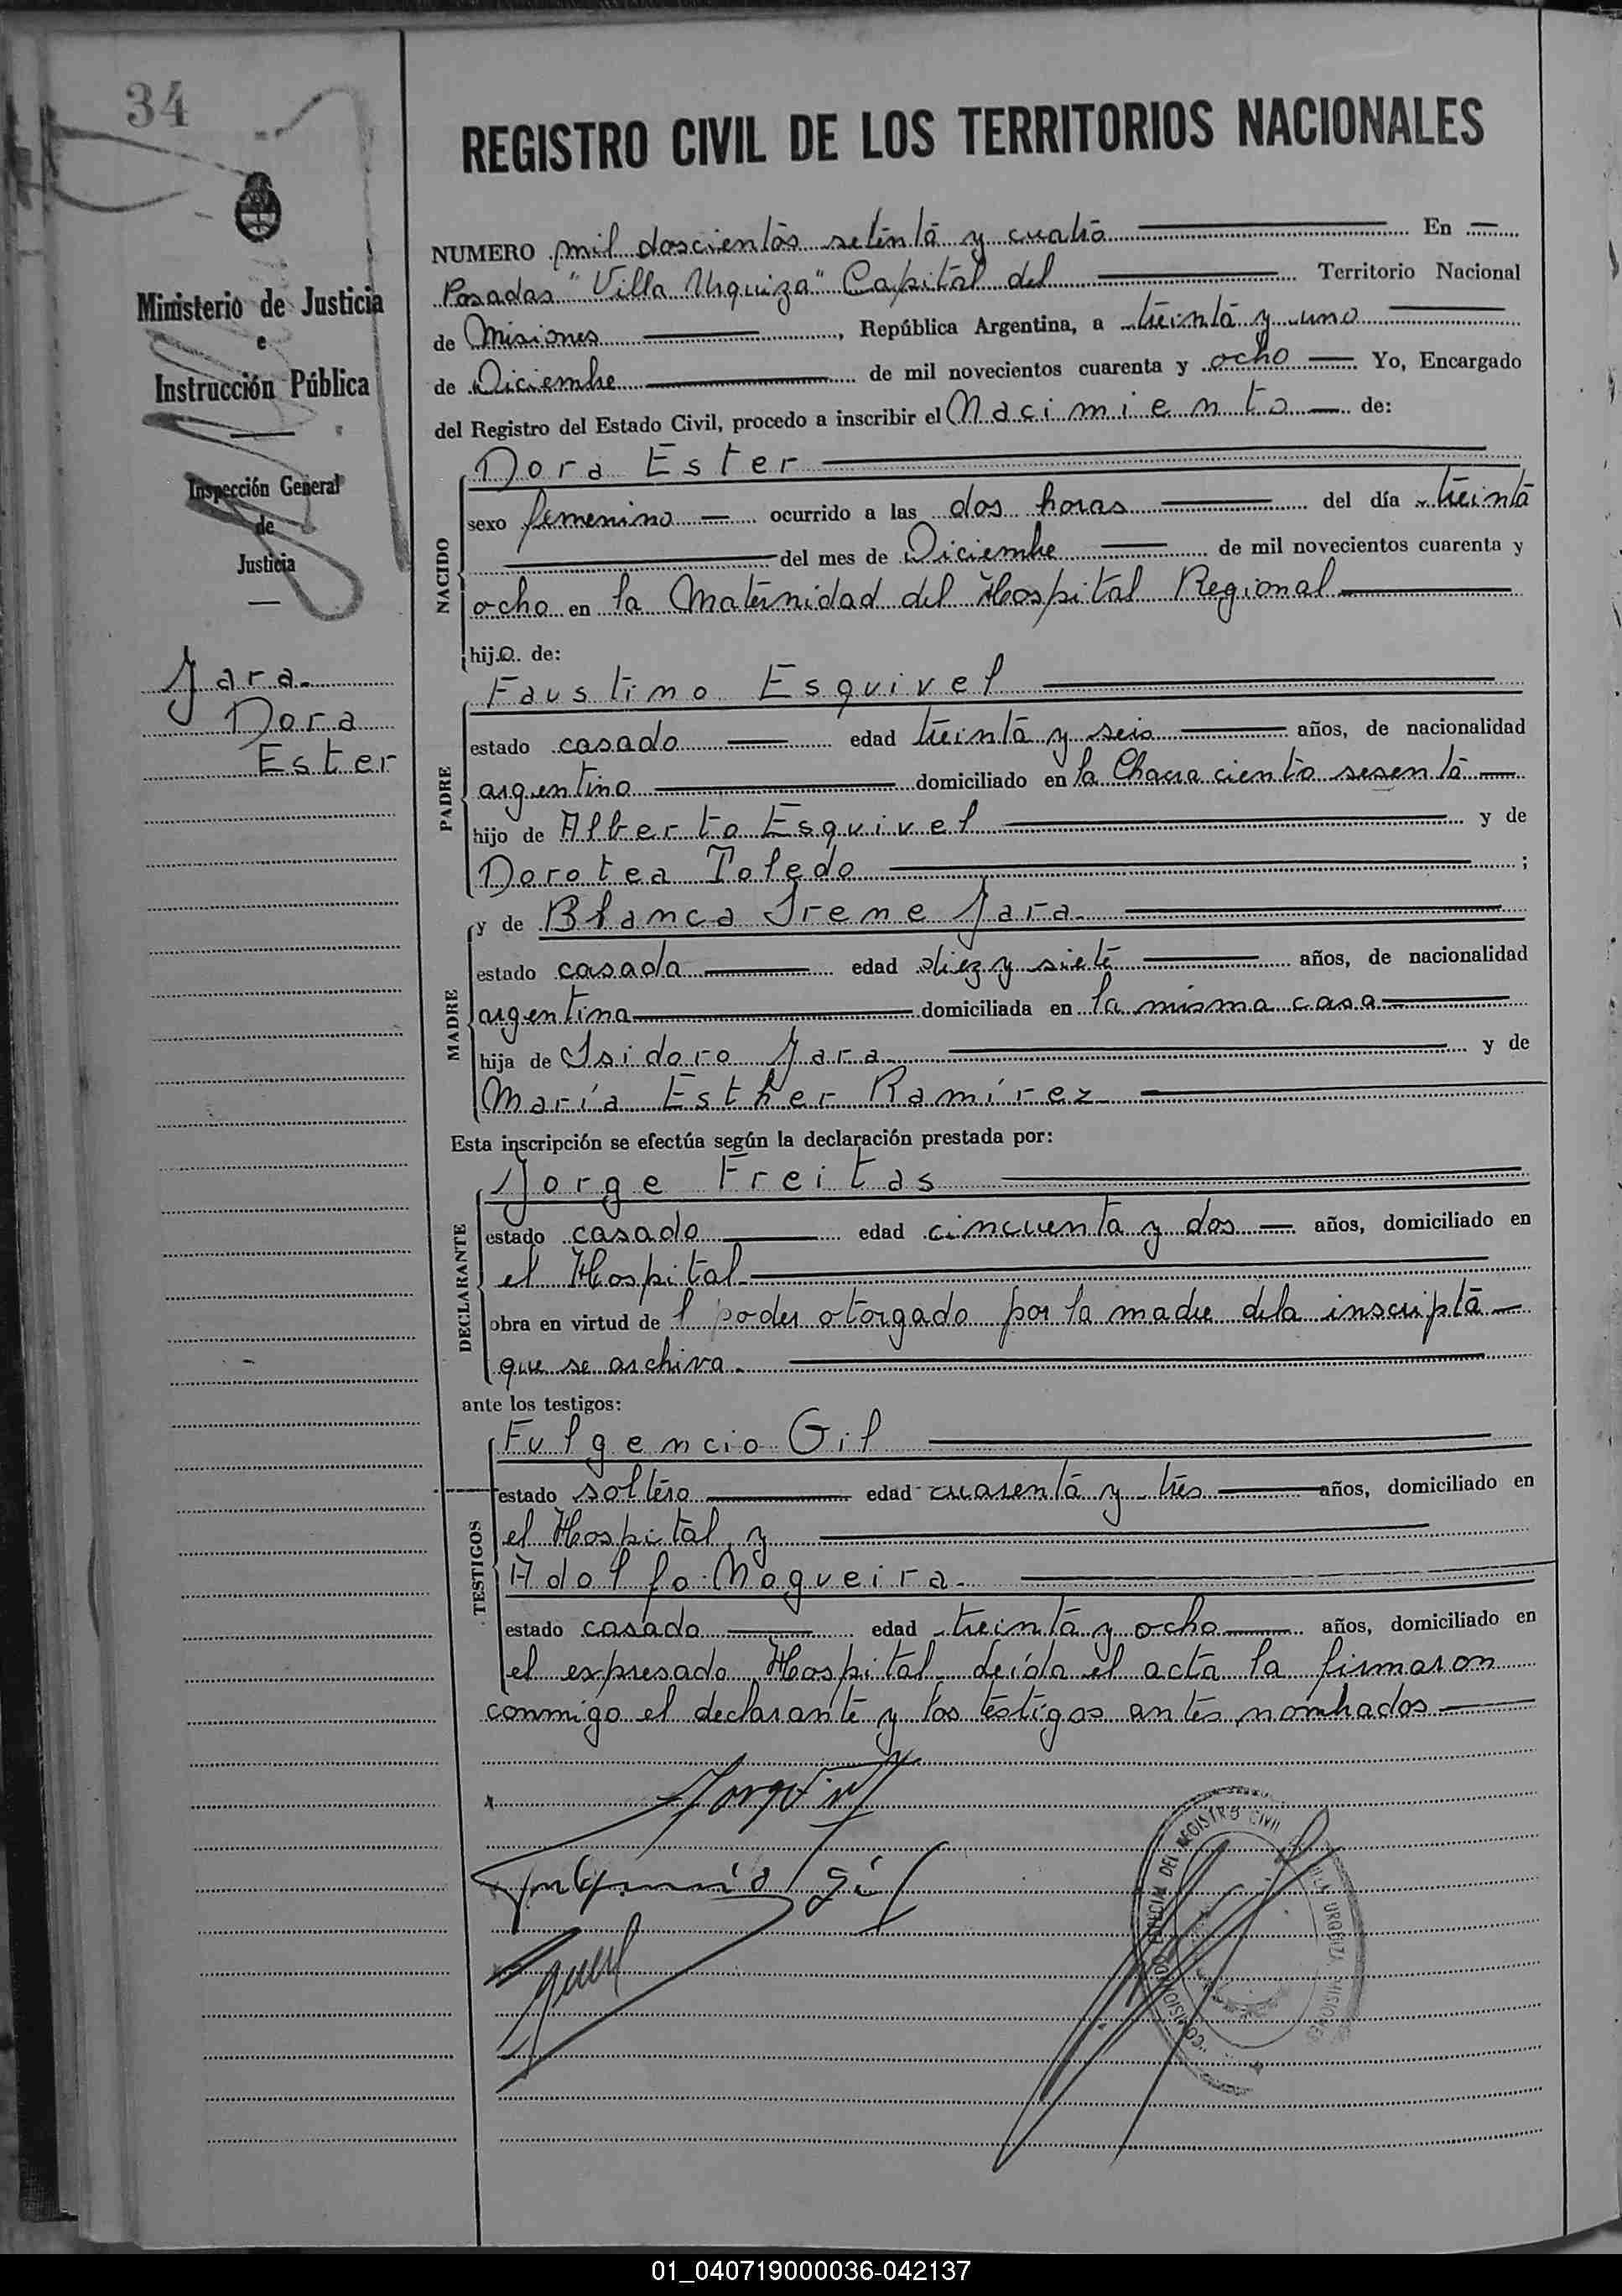 34
REGISTRO CIVIL DE LOS TERRITORIOS NACIONALES
Ministerio de Justicia
e
Instrucción Pública
Inspección General
de
Justicia
Jara
Dora
Ester
NUMERO mil doscientos setenta y cuatro En
Posadas "Villa Urquiza" Capital del Territorio Nacional
de Misiones, República Argentina, a treinta y uno
de Diciembre de mil novecientos cuarenta y ocho Yo, Encargado
del Registro del Estado Civil, procedo a inscribir el Nacimiento de:
NACIDO
Dora Ester
sexo femenino ocurrido a las dos horas del día treinta
del mes de Diciembre de mil novecientos cuarenta y
ocho en la Maternidad del Hospital Regional
hija de:
PADRE
Faustino Esquivel
estado casado edad treinta y seis años, de nacionalidad
argentino domiciliado en la Chacra ciento sesenta
hijo de Alberto Esquivel y de
Dorotea Toledo ;
MADRE
y de Blanca Irene Jara
estado casada edad diez y siete años, de nacionalidad
argentina domiciliada en la misma casa
hija de Isidoro Jara y de
María Esther Ramírez
Esta inscripción se efectúa según la declaración prestada por:
DECLARANTE
Jorge Freitas
estado casado edad cincuenta y dos años, domiciliado en
el Hospital
obra en virtud de l poder otorgado por la madre de la inscripta
que se archiva.
ante los testigos:
TESTIGOS
Fulgencio Gil
estado soltero edad cuarenta y tres años, domiciliado en
el Hospital y
Adolfo Nogueira
estado casado edad treinta y ocho años, domiciliado en
el expresado Hospital leída el acta la firmaron
conmigo el declarante y los testigos antes nombrados
DEL REGISTRO CIVIL
VILLA URQUIZA MISIONES
01_040719000036-042137